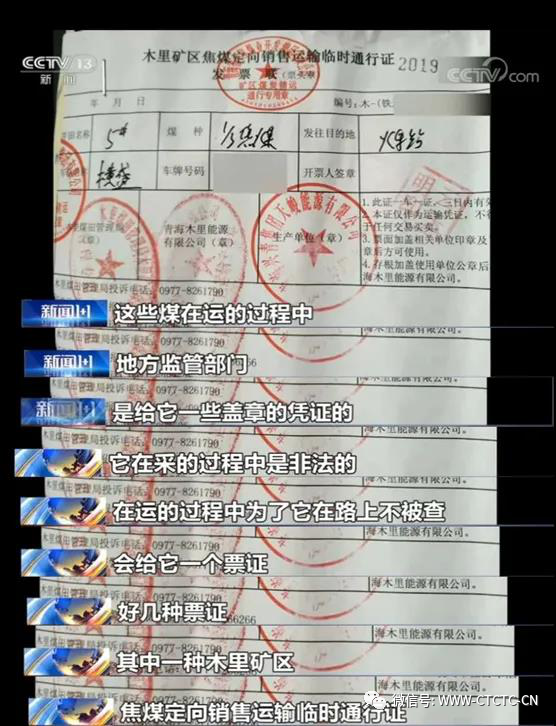 CCTV 13
新闻
CCTV.com
木里矿区焦煤定向销售运输临时通行证
2019
发票联(票头章)
矿区煤炭储运
通行专用章
年 月 日
编号:木一(铁
井田名称 5# 煤 种 冶焦煤 发往目的地
车牌号码 开票人签章
青海木里能源
有限公司(章)
生产单位(章)
1. 此证一车一证,三日内有效
2. 本证仅作为运输凭证,不得
于任何交易买卖。
3. 票面加盖相关单位印章及
章后方可使用。
4. 存根加盖使用单位公章后
海木里能源有限公司。
里煤田管理局投诉电话:0977-8261790
新闻1+1 这些煤在运的过程中
新闻1+1 地方监管部门
新闻1+1 是给它一些盖章的凭证的
它在采的过程中是非法的
在运的过程中为了它在路上不被查
会给它一个票证
好几种票证
其中一种木里矿区
焦煤定向销售运输临时通行证
海木里能源有限公司。
微信号:WWW-CTCTC-CN